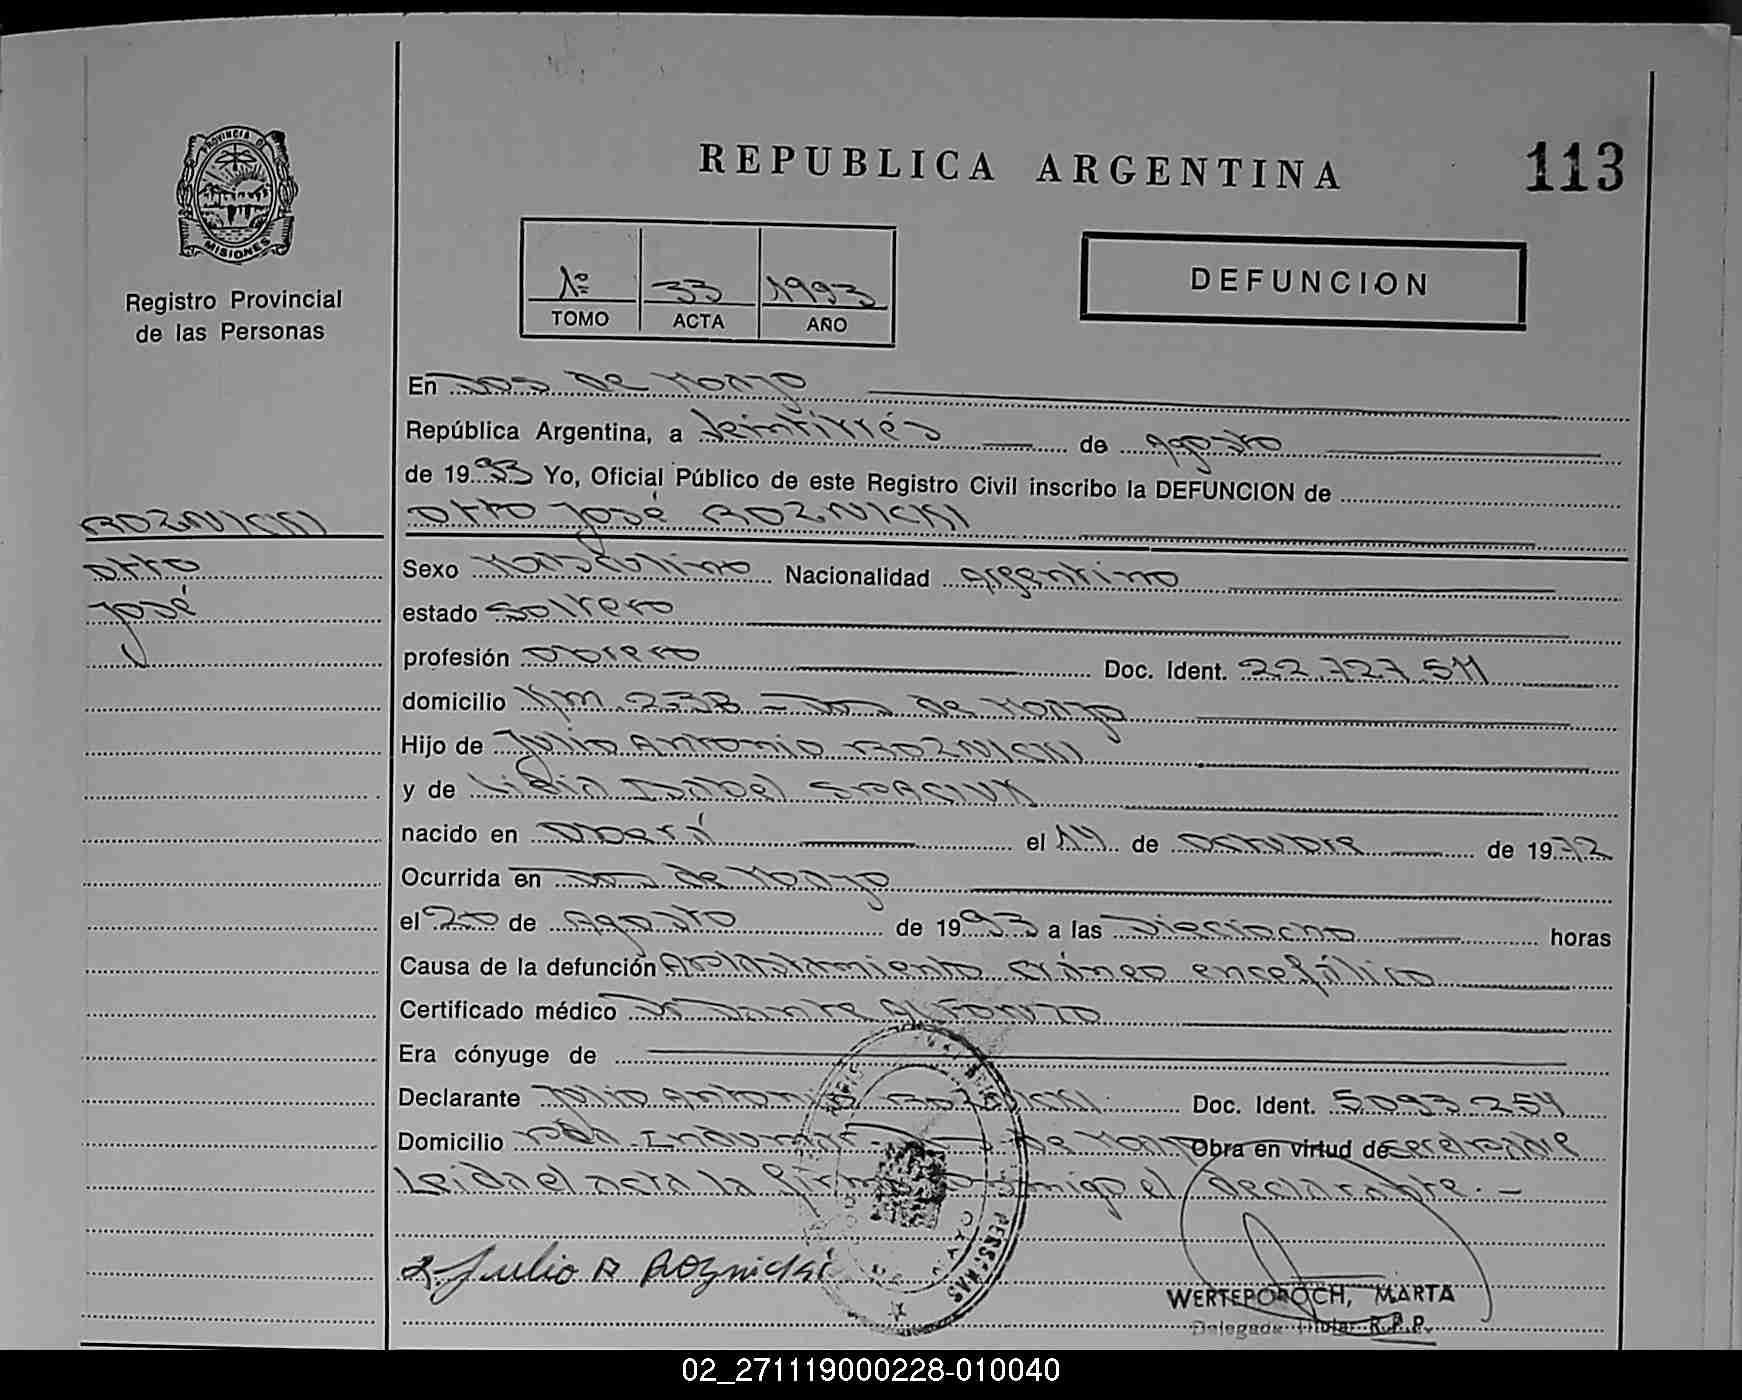 PROVINCIA DE
MISIONES
Registro Provincial
de las Personas
REPUBLICA ARGENTINA
113
1º 33 1993
TOMO ACTA AÑO
DEFUNCION
En Dos de Mayo
República Argentina, a Veintitrés de Agosto
de 1993 Yo, Oficial Público de este Registro Civil inscribo la DEFUNCION de
ROZNICKI
Otto José ROZNICKI
Otto
José
Sexo Masculino Nacionalidad Argentino
estado Soltero
profesión Obrero Doc. Ident. 22.727.511
domicilio Km 273B - Dos de Mayo
Hijo de Julio Antonio ROZNICKI
y de Isabel SPACIUK
nacido en Oberá el 14 de Octubre de 1972
Ocurrida en Dos de Mayo
el 20 de Agosto de 1993 a las Dieciocho horas
Causa de la defunción Aplastamiento cráneo encefálico
Certificado médico Dr Dante
Era cónyuge de
Declarante Julio Antonio ROZNICKI Doc. Ident. 5.093.254
Domicilio Dos de Mayo Obra en virtud de ser el padre
Leida el acta la firma conmigo el declarante.-
Julio A Roznicki
WERTEPOROCH, MARTA
Delegada Titular R.P.P.
02_271119000228-010040